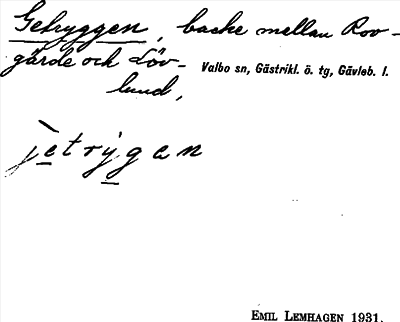 Getryggen, backe mellan Rov-
gärde och Löv-
lund,
Valbo sn, Gästrikl. ö. tg, Gävleb. l.
jetrygan
EMIL LEMHAGEN 1931.